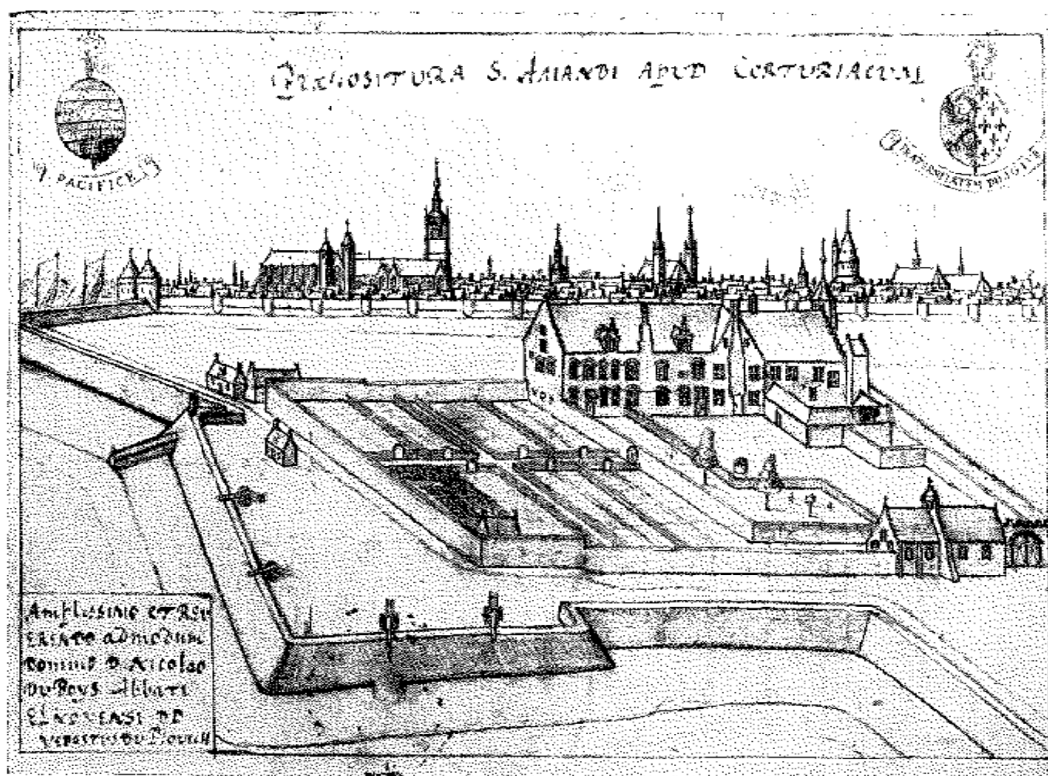 PRÆPOSITURA S. AMANDI APUD CORTURIACUM
PACIFICE
FRATERNITATEM DILIGITE
Amplissimo et Rev
erendo admodum
Domino D. Nicolao
Du Boys Abbati
Elnonensi DD